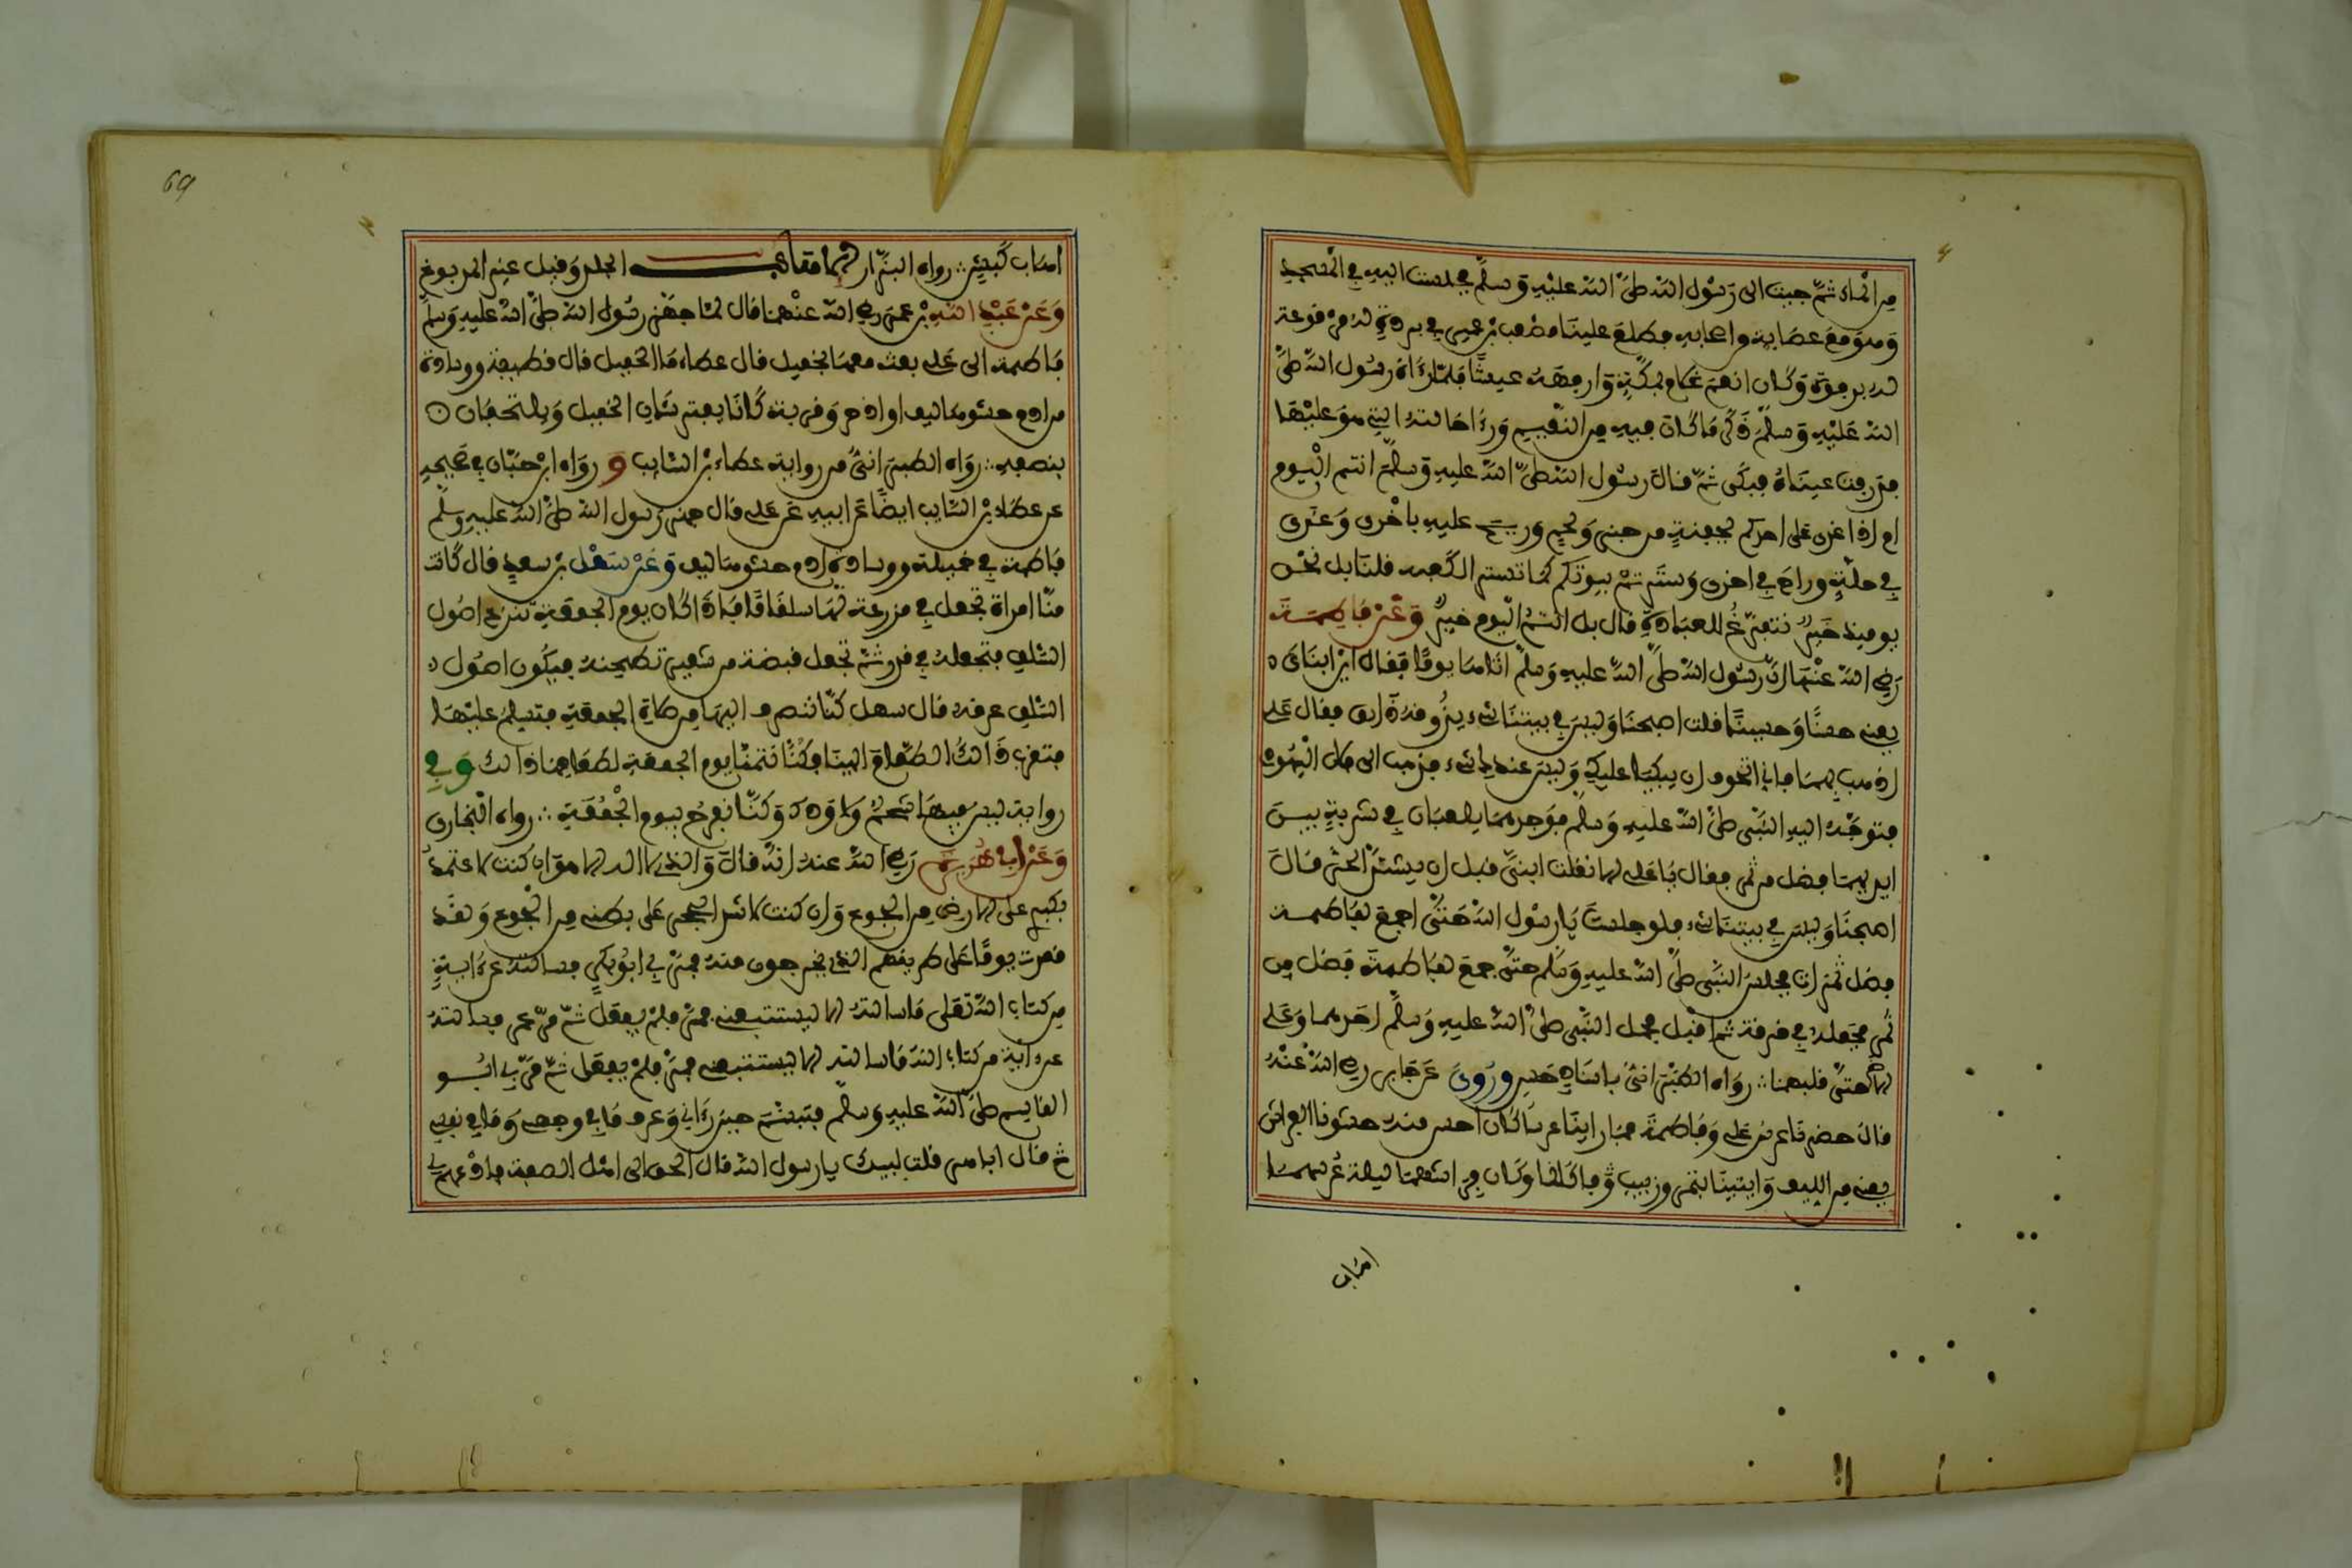 من الماء ثم جيت الى رسول الله صلى الله عليه وسلم فجلست اليه في المسجد
وهو مع عصابة من اصحابه فطلع علينا مصعب بن عمير في بردة له مرفوعة
له بروة وكان انعم غلام بمكة وارفهه عيشا فلما رءاه رسول الله صلى
الله عليه وسلم ذكر ما كان فيه من النعيم ورءا حالته التي هو عليها
فذرفت عيناه فبكى ثم قال رسول الله صلى الله عليه وسلم انتم اليوم
ام اذا غدى على احدكم بجفنة من خبز ولحم وريح عليه باخرى وغدى
في حلة وراح في اخرى وسترتم بيوتكم كما تستر الكعبة قلنا بل نحن
يوميذ خير نتفرغ للعبادة قال بل انتم اليوم خير وعن فاطمة
رضي الله عنها ان رسول الله صلى الله عليه وسلم اتاها يوما فقال اين ابناى
يعني حسنا وحسينا قلت اصبحنا وليس في بيتنا شيء يذوقه ذايق فقال علي
اذهب بهما فاني اتخوف ان يبكيا عليك وليس عندك شيء فذهب الى فلان اليهودي
فتوجه اليه النبي صلى الله عليه وسلم فوجدهما يلعبان في شربة بين
ايديهما فضل من تمر فقال يا علي الا تقلب ابني قبل ان يشتد الحر قال
اصبحنا وليس في بيتنا شيء فلو جلست يا رسول الله حتى اجمع لفاطمة
فضل تمرات فجلس النبي صلى الله عليه وسلم حتى جمع لفاطمة فضل من
تمر فجعله في خرقة ثم اقبل فحمل النبي صلى الله عليه وسلم احدهما وعلي
الاخر حتى قلبهما رواه الطبراني باسناد حسن وروى عن جابر رضي الله عنه
قال حضرنا عرس علي وفاطمة فما راينا عرسا كان احسن منه حشونا الفراش
يعني من الليف واتينا بتمر وزبيب فاكلنا وكان فراشهما ليلة عرسهما
اهاب
69
اهاب كبش رواه البزار الاهاب الجلد وقيل غير المدبوغ
وعن عبد الله بن عمر رضي الله عنهما قال لما جهز رسول الله صلى الله عليه وسلم
فاطمة الى علي بعث معها بخميل قال عطاء ما الخميل قال قطيفة ووسادة
من ادم حشوها ليف واذخر وقربة كانا يفترشان الخميل ويلتحفان
بنصفه رواه الطبراني من رواية عطاء بن السايب و رواه ابن حبان في صحيحه
عن عطاء بن السايب ايضا عن ابيه عن علي قال جهز رسول الله صلى الله عليه وسلم
فاطمة في خميلة ووسادة ادم حشوها ليف وعن سهل بن سعد قال كانت
منا امراة تجعل في مزرعة لها سلفا فاذا كان يوم الجمعة تنزع اصول
السلق فتجعله في قدر ثم تجعل قبضة من شعير تطحنه فيكون اصول
السلق عرقه قال سهل كنا ننصرف اليها من صلاة الجمعة فنسلم عليها
فتقرب ذالك الطعام الينا فكنا نتمنا يوم الجمعة لطعامها ذالك وفي
رواية ليس فيها شحم ولا ودك وكنا نفرح بيوم الجمعة رواه البخاري
وعن ابي هريرة رضي الله عنه انه قال والذي لا اله الا هو ان كنت لاعتمد
بكبدي على الارض من الجوع وان كنت لاشد الحجر على بطني من الجوع ولقد
قعدت يوما على طريقهم الذي يخرجون منه فمر بي ابو بكر فسالته عن ءاية
من كتاب الله تعلى ما سالته الا ليستتبعني فمر فلم يفعل ثم مر عمر فسالته
عن ءاية من كتاب الله ما سالته الا ليستتبعني فمر فلم يفعل ثم مر بي ابو
القاسم صلى الله عليه وسلم فتبسم حين رءاني وعرف ما في وجهي وما في نفسي
ثم قال ابا هر قلت لبيك يا رسول الله قال الحق الى اهل الصفة فادعهم لي